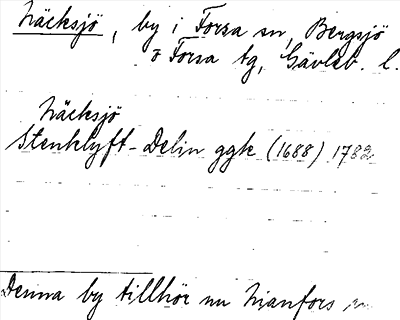 Näcksjö, by i Forsa sn, Bergsjö
o Forsa tg, Gävleb. l.
Näcksjö
Stenklyft-Delin ggk (1688) 1782
Denna by tillhör nu Nianfors sn